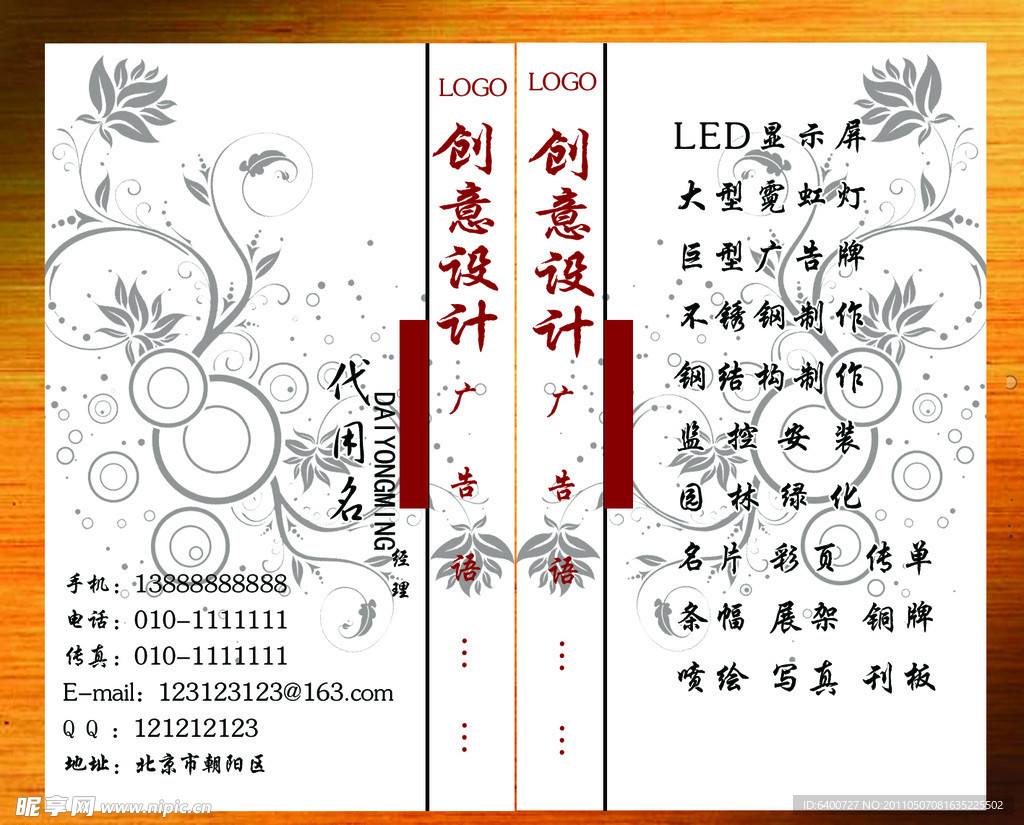 代用名
DAIYONGMING
经理
手机：13888888888
电话：010-1111111
传真：010-1111111
E-mail：123123123@163.com
QQ：121212123
地址：北京市朝阳区
LOGO
创意设计
广告语……
LOGO
创意设计
广告语……
LED显示屏
大型霓虹灯
巨型广告牌
不锈钢制作
钢结构制作
监控安装
园林绿化
名片 彩页 传单
条幅 展架 铜牌
喷绘 写真 刊板
昵享网 www.nipic.cn
ID:6400727 NO:20110507081635225502